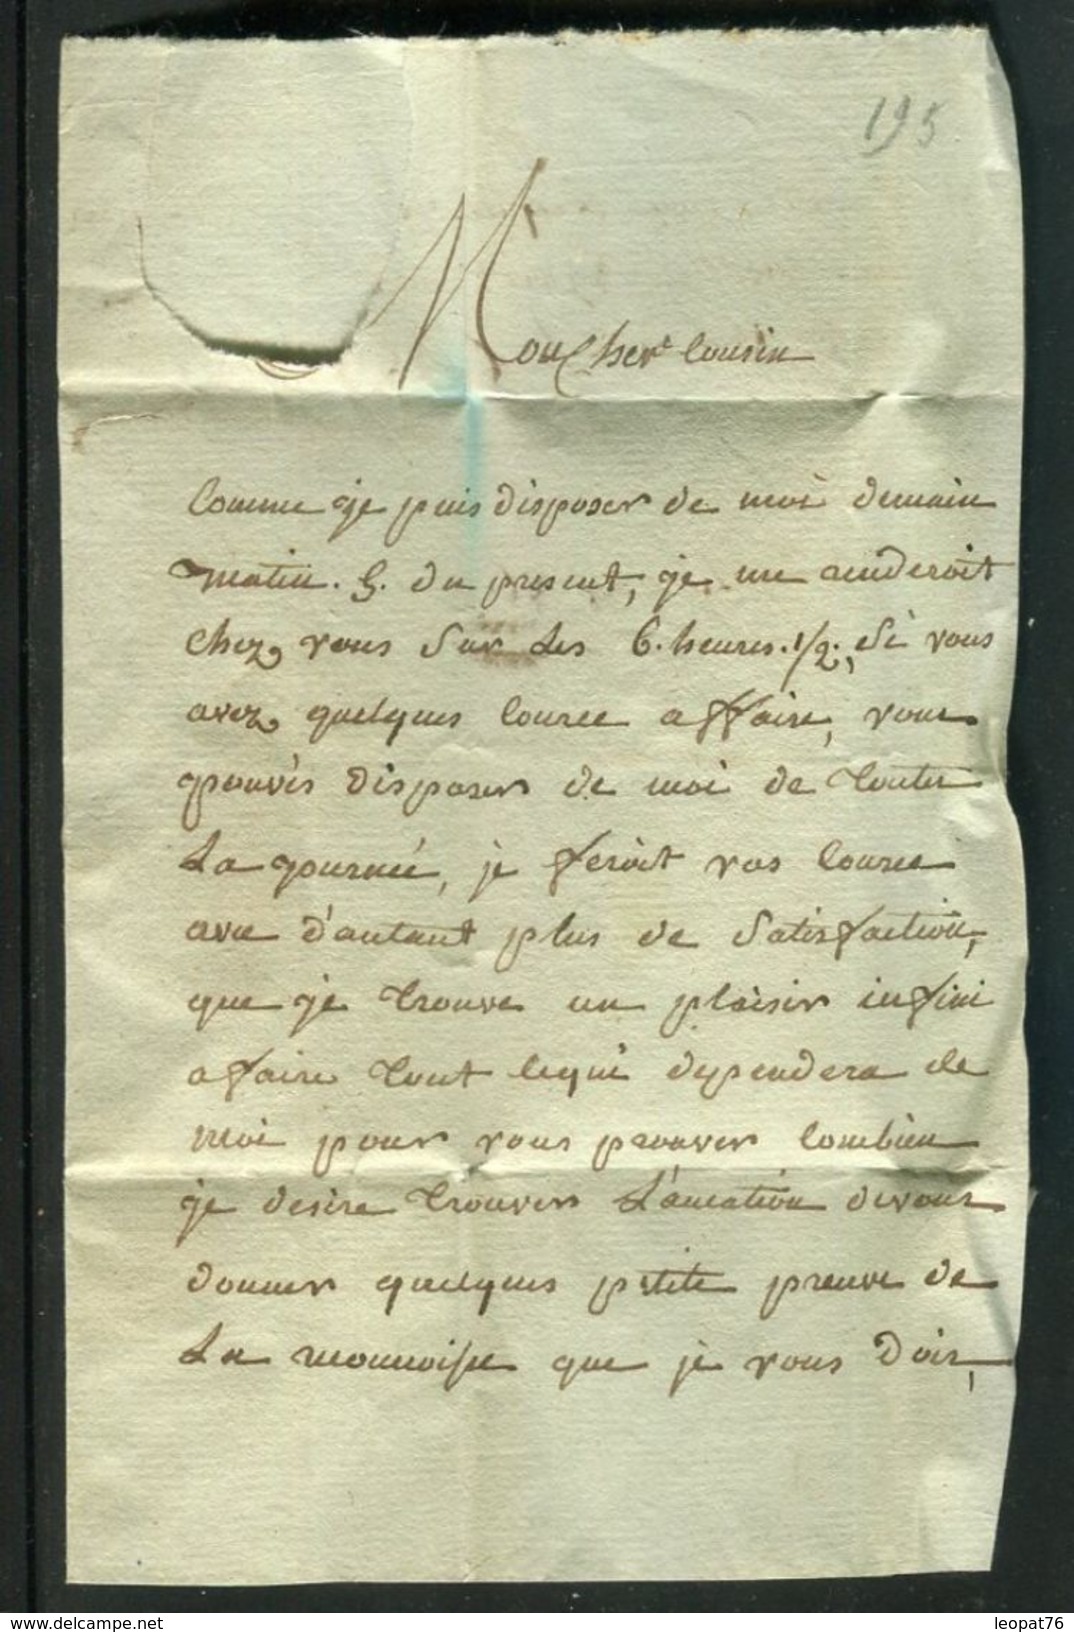 195
Mon Cher Cousin
Comme je puis disposer de moi demain
matin. 5. du present, je me renderoit
chez vous Sur Les 6. heures. 1/2, Si vous
avez quelques Cource affaire, vous
pouvés disposer de moi de toutes
La journée, je feroit vos Cource
avec d'autant plus de Satisfaction,
que je trouve un plaisir infini
affaire tout cequi dependera de
moi pour vous prouver Combien
je desire trouver L'
devous
donner quelques petite preuve de
La que je vous dois,
www.delcampe.net
leopat76